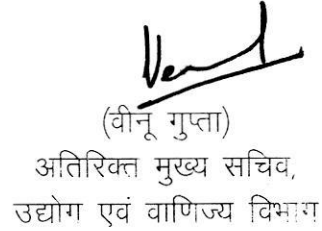 (वीनू गुप्ता)
अतिरिक्त मुख्य सचिव,
उद्योग एवं वाणिज्य विभाग